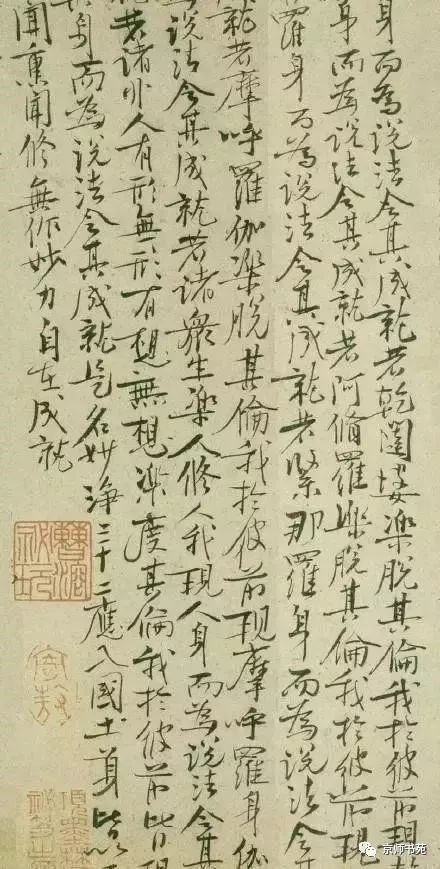 身而為說法令其成就若乾闥婆樂脫其倫我於彼前現
身而為說法令其成就若阿脩羅樂脫其倫我於彼前現
羅身而為說法令其成就若緊那羅身而為說法令其
就若摩呼羅伽樂脫其倫我於彼前現摩呼羅身伽
為說法令其成就若諸衆生樂人修人我現人身而為說法令其
就若諸非人有形無形有想無想樂度其倫我於彼前皆現
其身而為說法令其成就是名妙淨三十二應入國土身皆以
聞熏聞修無作妙力自在成就
京师书苑